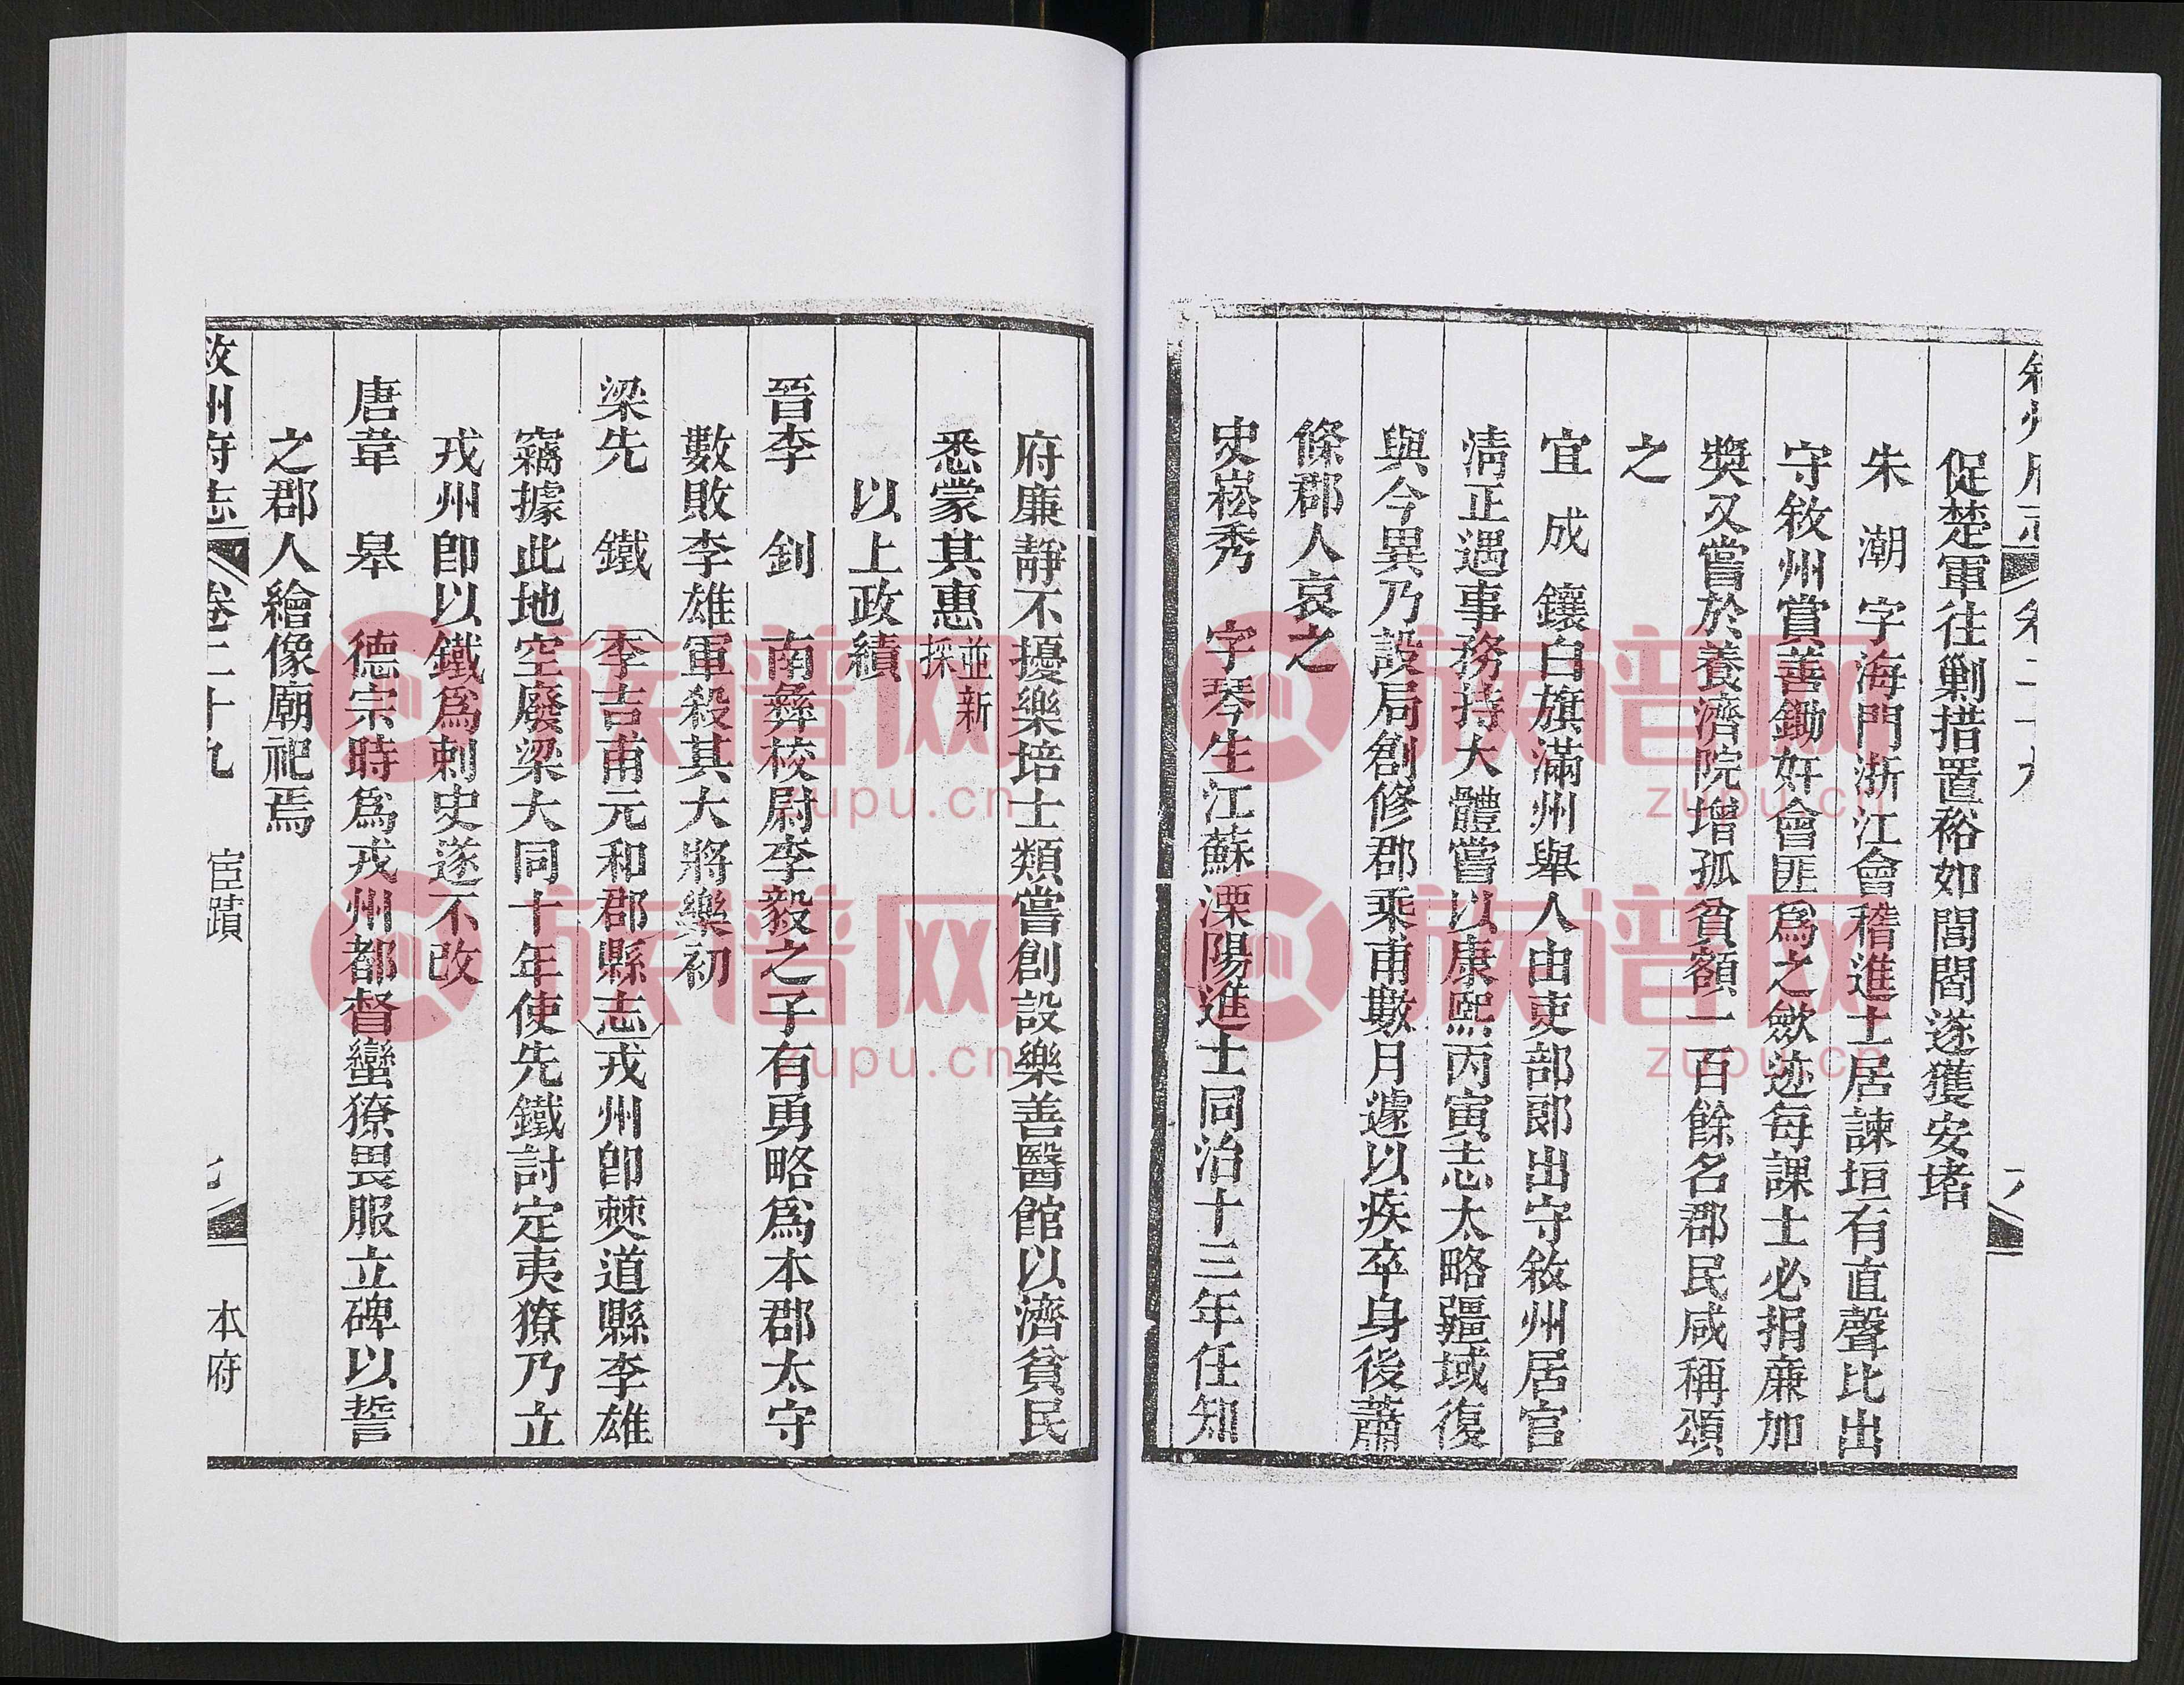 敘州府志 卷二十九
促楚軍往剿措置裕如閭閻遂獲安堵
朱 潮 字海門浙江會稽進士居諫垣有直聲比出
守敘州賞善鋤奸會匪爲之歛迹每課士必捐廉加
獎又嘗於養濟院增孤貧額一百餘名郡民咸稱頌
之
宜 成 鑲白旗滿州舉人由吏部郎出守敘州居官
清正遇事務持大體嘗以康熙丙寅志太略疆域復
與今異乃設局創修郡乘甫數月遽以疾卒身後蕭
條郡人哀之
史崧秀 字琴生江蘇溧陽進士同治十三年任知
府廉靜不擾樂培士類嘗創設樂善醫館以濟貧民
悉蒙其惠並新採
以上政績
晉李 釗 南彝校尉李毅之子有勇略爲本郡太守
數敗李雄軍殺其大將樂初
梁先 鐵 李吉甫元和郡縣志戎州卽僰道縣李雄
竊據此地空廢梁大同十年使先鐵討定夷獠乃立
戎州卽以鐵爲刺史遂不改
唐韋 皋 德宗時爲戎州都督蠻獠畏服立碑以誓
之郡人繪像廟祀焉
敘州府志 卷二十九 宦蹟 本府
族谱网
zupu.cn
族谱网
zupu.cn
族谱网
zupu.cn
族谱网
zupu.cn